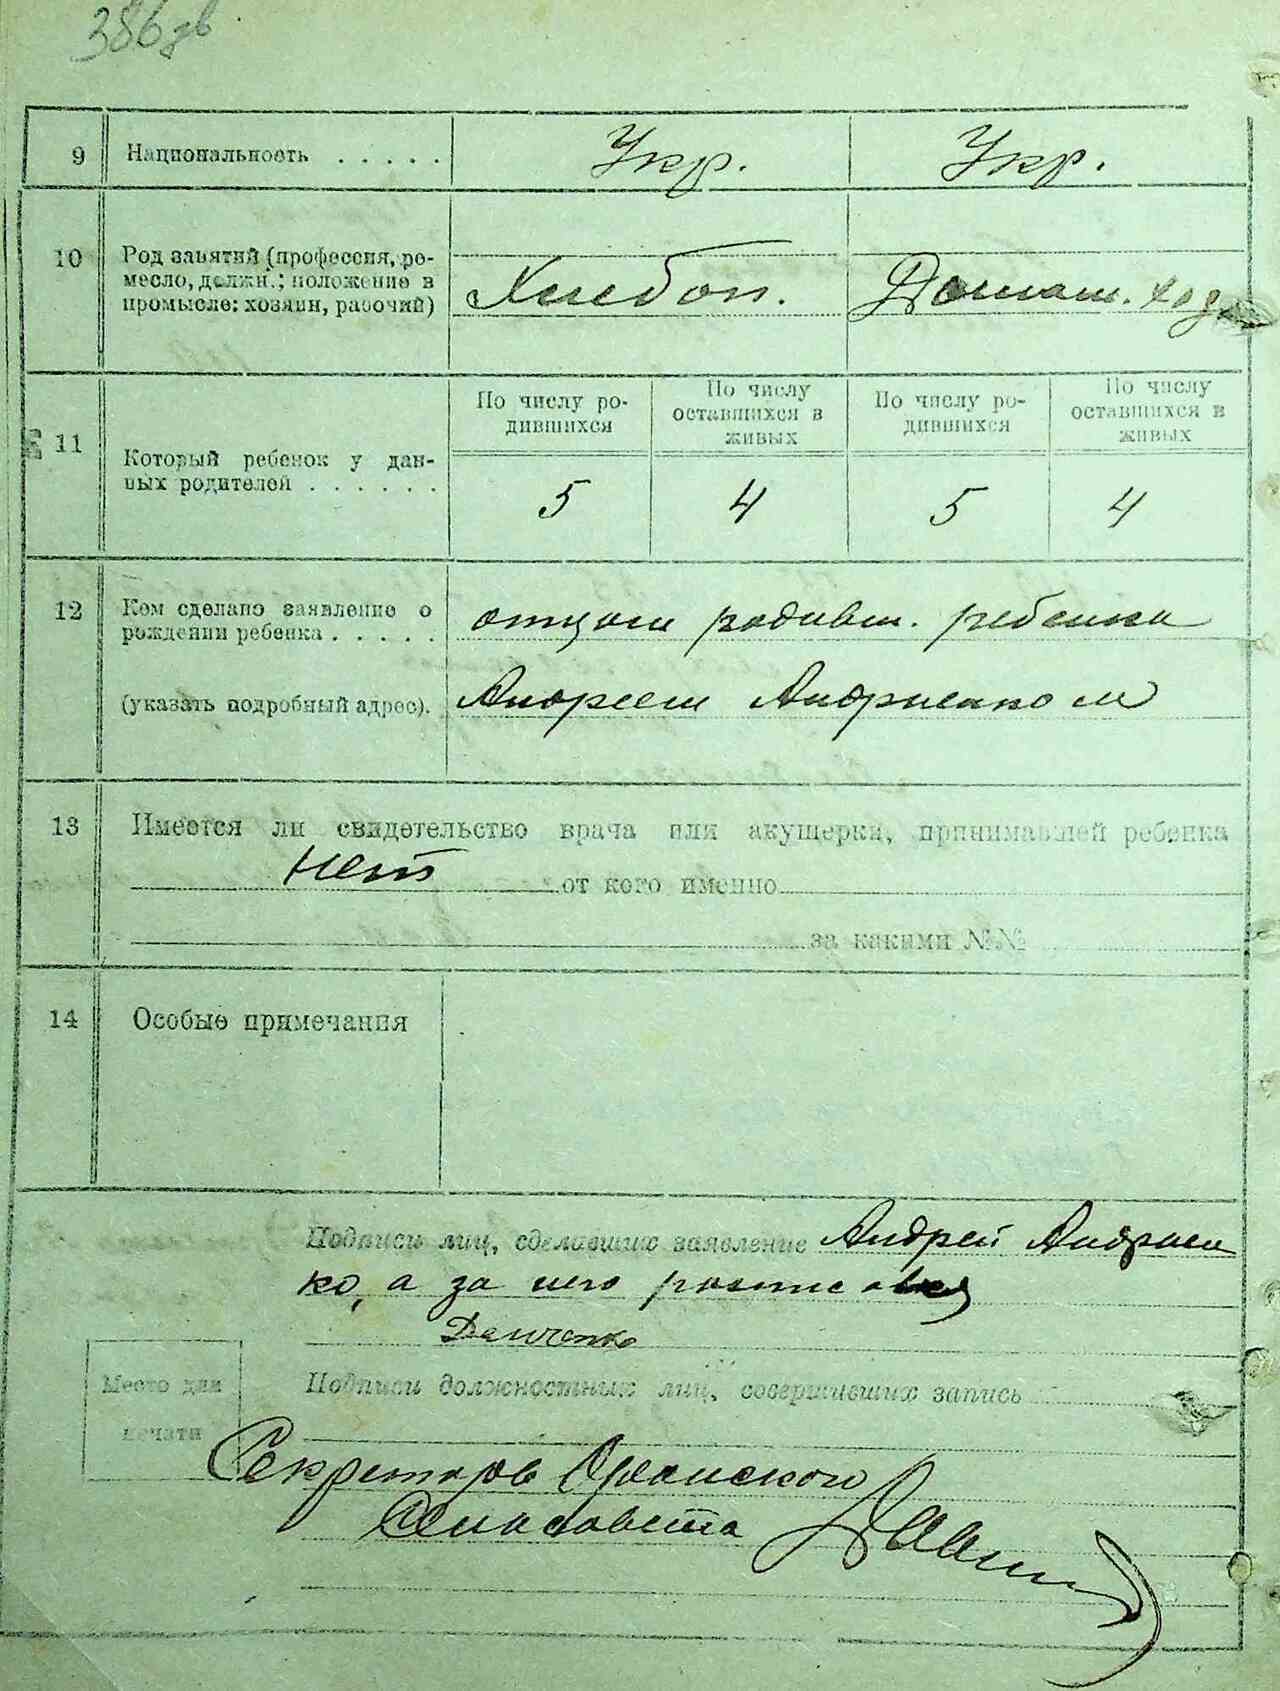 386зв
9 Национальность . . . . . Укр. Укр.
10 Род занятий (профессия, ре-
месло, должн.; положение в
промысле: хозяин, рабочий)
Хлебоп. Домаш. хоз
11 Который ребенок у дан-
ных родителей . . . . . .
По числу ро-
дившихся
По числу
оставшихся в
живых
По числу ро-
дившихся
По числу
оставшихся в
живых
5 4 5 4
12 Кем сделано заявление о
рождении ребенка . . . . .
(указать подробный адрес).
отцом родивш. ребенка
Андреем Андриенком
13 Имеется ли свидетельство врача или акушерки, принимавшей ребенка
нет от кого именно
за какими №№
14 Особые примечания
Подписи лиц, сделавших заявление Андрей Андриен
ко, а за него росписался
Демченко
Место для
печати
Подписи должностных лиц, совершивших запись
Секретарь
Сельсовета